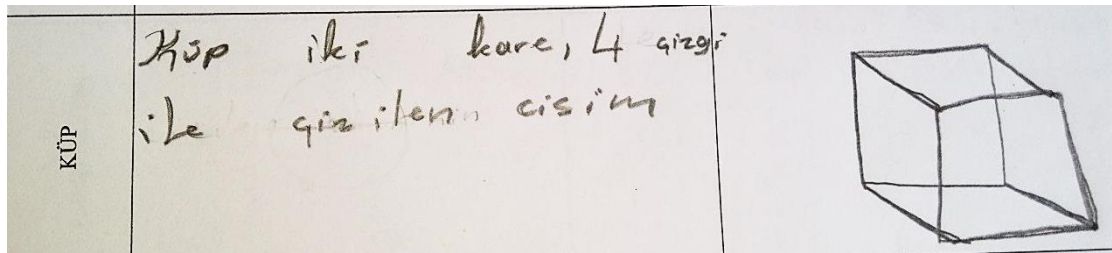 KÜP
Küp iki kare, 4 çizgi
ile çizilen cisim